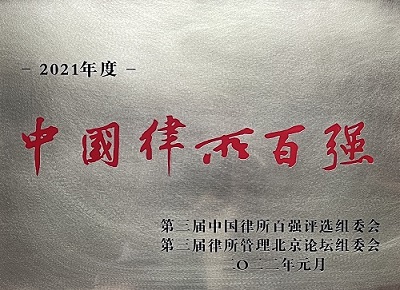 - 2021年度 -
中國律所百强
第三届中国律所百强评选组委会
第三届律所管理北京论坛组委会
二〇二二年元月